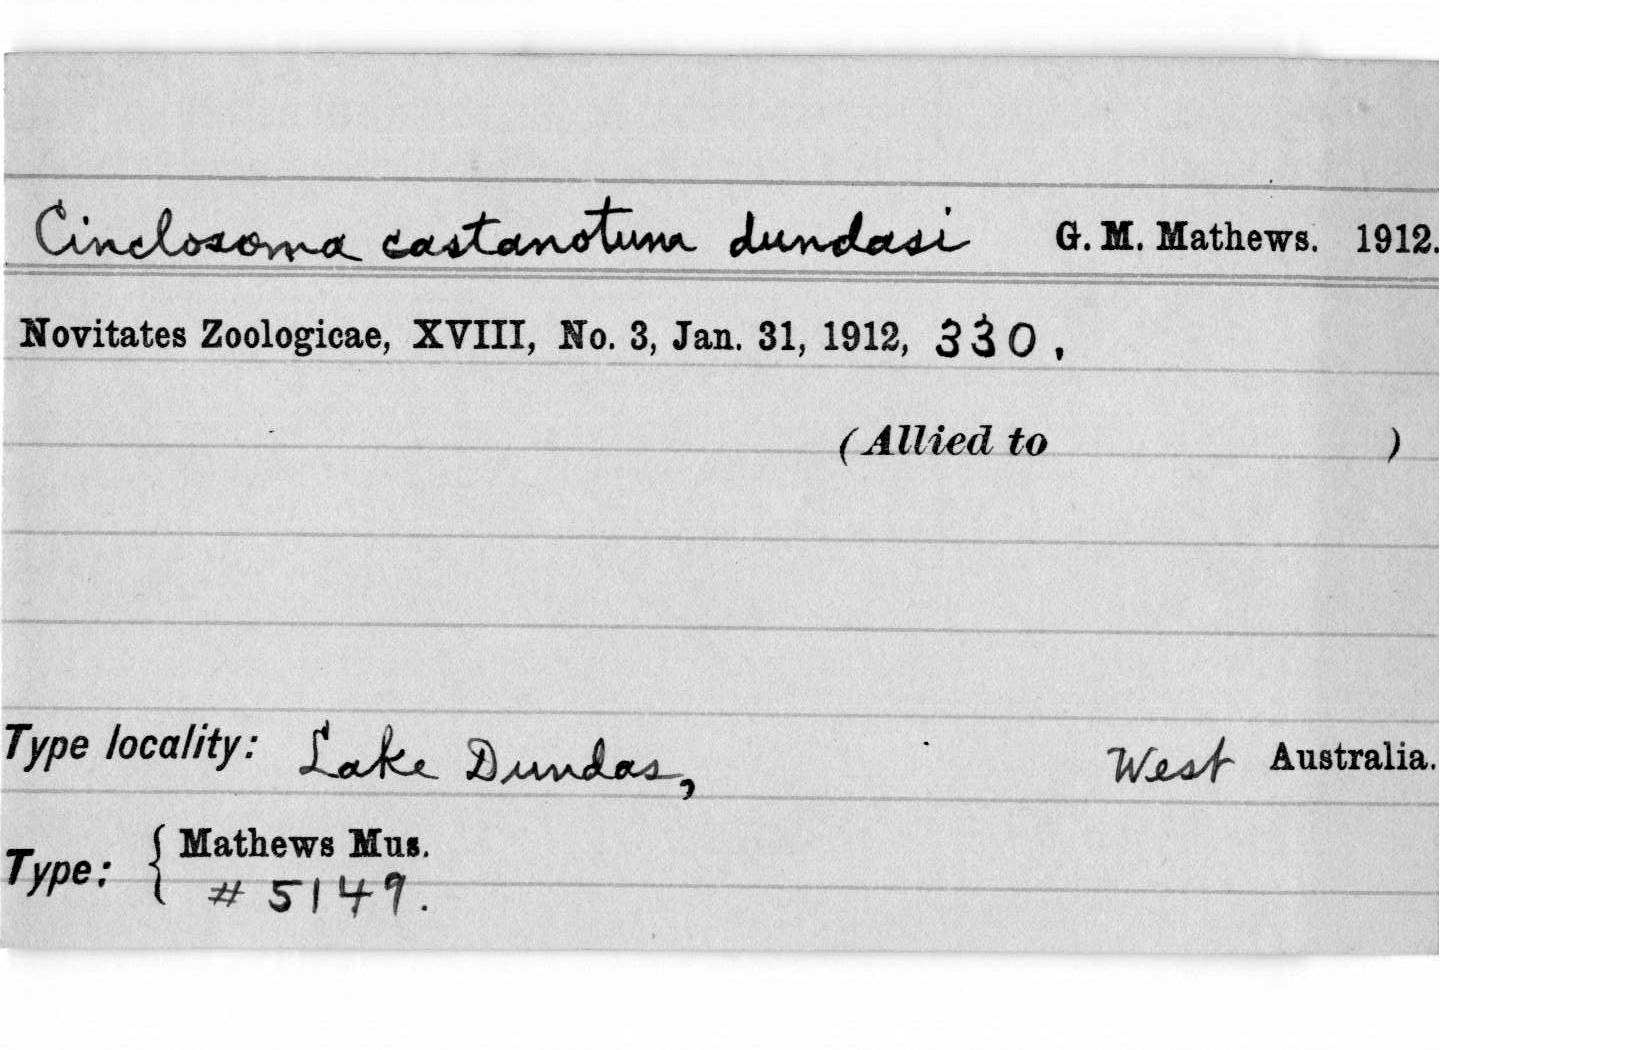 Cinclosoma castanotum dundasi G. M. Mathews. 1912.
Novitates Zoologicae, XVIII, No. 3, Jan. 31, 1912, 330.
(Allied to )
Type locality: Lake Dundas, West Australia.
Type: { Mathews Mus.
# 5149.